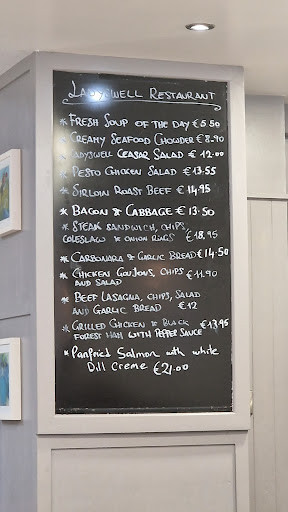 Ladyswell Restaurant
* Fresh Soup of the day € 5.50
* Creamy Seafood Chowder € 8.90
* Ladyswell Ceasar Salad € 12.00
* Pesto Chicken Salad € 13.55
* Sirloin Roast Beef € 14,95
* Bacon & Cabbage € 13.50
* Steak sandwich, chips,
coleslaw & onion rings € 18,95
* Carbonara & Garlic Bread € 14.50
* Chicken Goujons, chips € 11.90
and salad
* Beef Lasagna, chips, salad
and garlic bread € 12
* Grilled Chicken & Black € 13,95
Forest Ham with Pepper Sauce
* Panfried Salmon with white
Dill Creme € 21.00